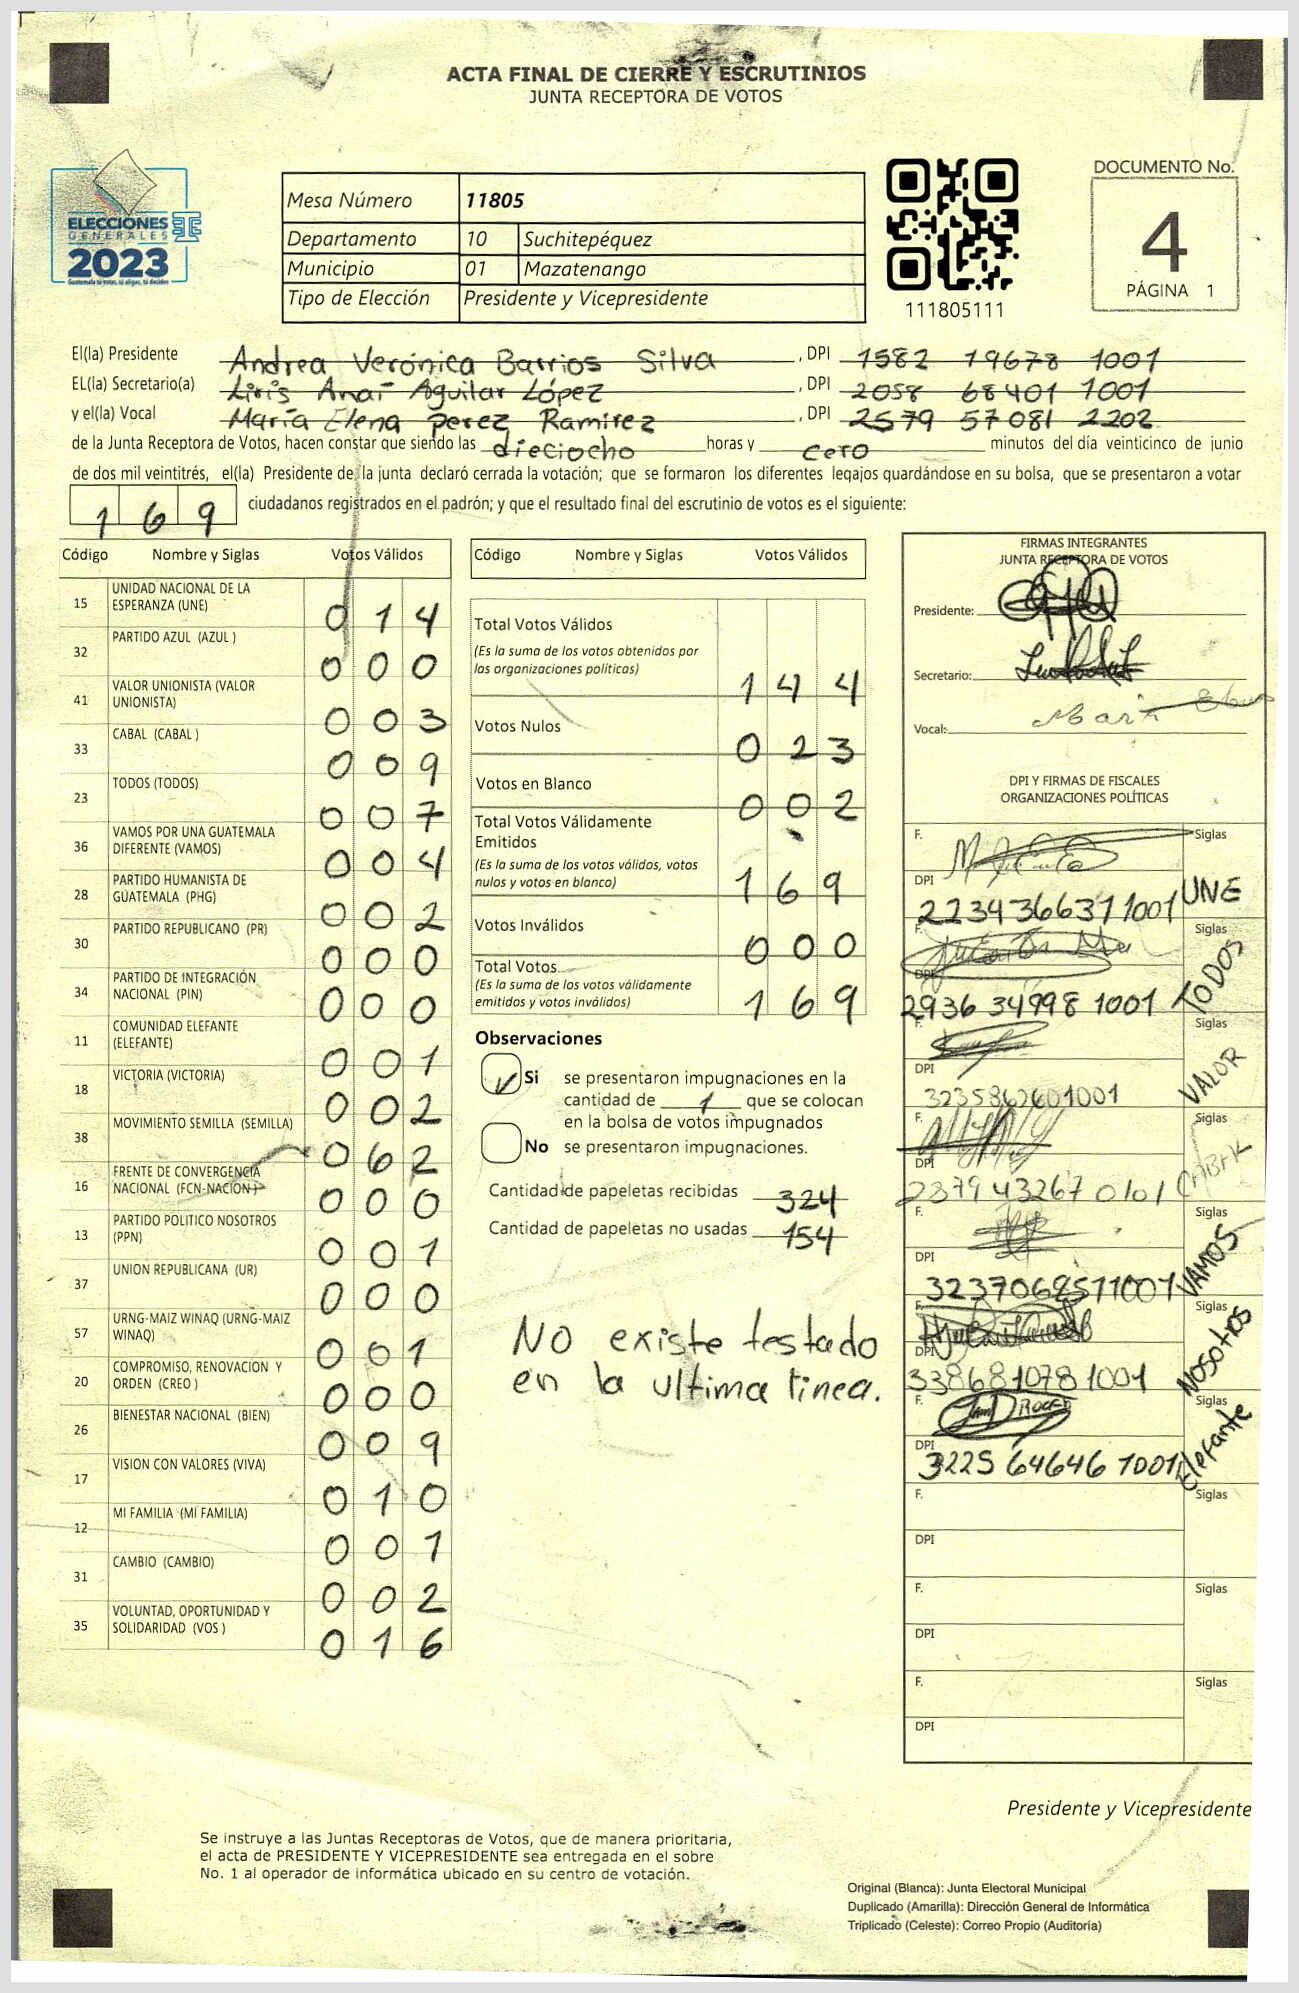 ACTA FINAL DE CIERRE Y ESCRUTINIOS
JUNTA RECEPTORA DE VOTOS
ELECCIONES
GENERALES
2023
Guatemala tú votas, tú eliges, tú decides
Mesa Número 11805
Departamento 10 Suchitepéquez
Municipio 01 Mazatenango
Tipo de Elección Presidente y Vicepresidente
111805111
DOCUMENTO No.
4
PÁGINA 1
El(la) Presidente Andrea Verónica Barrios Silva , DPI 1582 19678 1001
EL(la) Secretario(a) Liris Anaí Aguilar López , DPI 2058 68401 1001
y el(la) Vocal María Elena perez Ramirez , DPI 2579 57081 2202
de la Junta Receptora de Votos, hacen constar que siendo las dieciocho horas y cero minutos del día veinticinco de junio
de dos mil veintitrés, el(la) Presidente de la junta declaró cerrada la votación; que se formaron los diferentes legajos guardándose en su bolsa, que se presentaron a votar
169 ciudadanos registrados en el padrón; y que el resultado final del escrutinio de votos es el siguiente:
Código Nombre y Siglas Votos Válidos
15 UNIDAD NACIONAL DE LA ESPERANZA (UNE) 014
32 PARTIDO AZUL (AZUL ) 000
41 VALOR UNIONISTA (VALOR UNIONISTA) 003
33 CABAL (CABAL ) 009
23 TODOS (TODOS) 007
36 VAMOS POR UNA GUATEMALA DIFERENTE (VAMOS) 004
28 PARTIDO HUMANISTA DE GUATEMALA (PHG) 002
30 PARTIDO REPUBLICANO (PR) 000
34 PARTIDO DE INTEGRACIÓN NACIONAL (PIN) 000
11 COMUNIDAD ELEFANTE (ELEFANTE) 001
18 VICTORIA (VICTORIA) 002
38 MOVIMIENTO SEMILLA (SEMILLA) 062
16 FRENTE DE CONVERGENCIA NACIONAL (FCN-NACION ) 000
13 PARTIDO POLITICO NOSOTROS (PPN) 001
37 UNION REPUBLICANA (UR) 000
57 URNG-MAIZ WINAQ (URNG-MAIZ WINAQ) 001
20 COMPROMISO, RENOVACION Y ORDEN (CREO ) 000
26 BIENESTAR NACIONAL (BIEN) 009
17 VISION CON VALORES (VIVA) 010
12 MI FAMILIA (MI FAMILIA) 001
31 CAMBIO (CAMBIO) 002
35 VOLUNTAD, OPORTUNIDAD Y SOLIDARIDAD (VOS ) 016
Código Nombre y Siglas Votos Válidos
Total Votos Válidos
(Es la suma de los votos obtenidos por
las organizaciones políticas) 144
Votos Nulos 023
Votos en Blanco 002
Total Votos Válidamente
Emitidos
(Es la suma de los votos válidos, votos
nulos y votos en blanco) 169
Votos Inválidos 000
Total Votos
(Es la suma de los votos válidamente
emitidos y votos inválidos) 169
Observaciones
Si se presentaron impugnaciones en la
cantidad de 1 que se colocan
en la bolsa de votos impugnados
No se presentaron impugnaciones.
Cantidad de papeletas recibidas 324
Cantidad de papeletas no usadas 154
No existe testado
en la ultima linea.
FIRMAS INTEGRANTES
JUNTA RECEPTORA DE VOTOS
Presidente:
Secretario:
Vocal: Maria Elena
DPI Y FIRMAS DE FISCALES
ORGANIZACIONES POLÍTICAS
F. Siglas
DPI 2234366371001 UNE
F. Siglas
DPI 2936 34998 1001 TODOS
F. Siglas
DPI 3235862601001 VALOR
F. Siglas
DPI 2379 43267 0101 CABAL
F. Siglas
DPI 3237068571001 VAMOS
F. Siglas
DPI 3386810781001 NOSOTROS
F. Siglas
DPI 3225 64646 1001 Elefante
F. Siglas
DPI
F. Siglas
DPI
F. Siglas
DPI
Presidente y Vicepresidente
Se instruye a las Juntas Receptoras de Votos, que de manera prioritaria,
el acta de PRESIDENTE Y VICEPRESIDENTE sea entregada en el sobre
No. 1 al operador de informática ubicado en su centro de votación.
Original (Blanca): Junta Electoral Municipal
Duplicado (Amarilla): Dirección General de Informática
Triplicado (Celeste): Correo Propio (Auditoría)